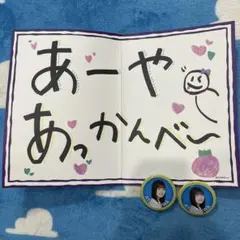 あーや
あっかんべー